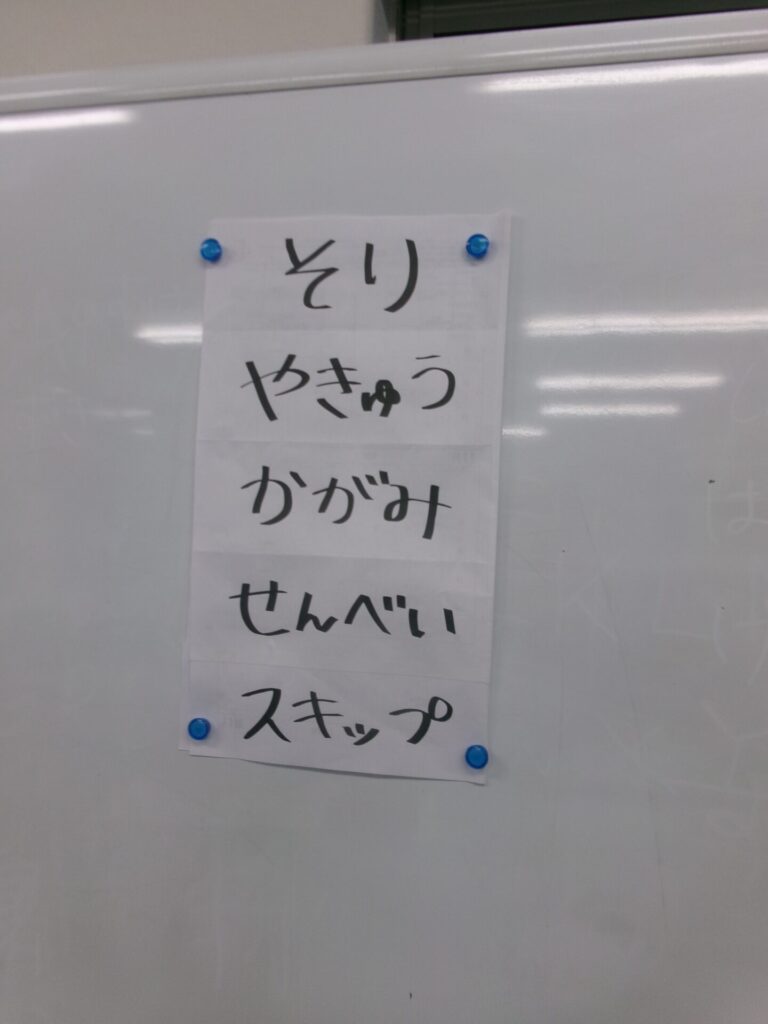 そり
やきゅう
かがみ
せんべい
スキップ